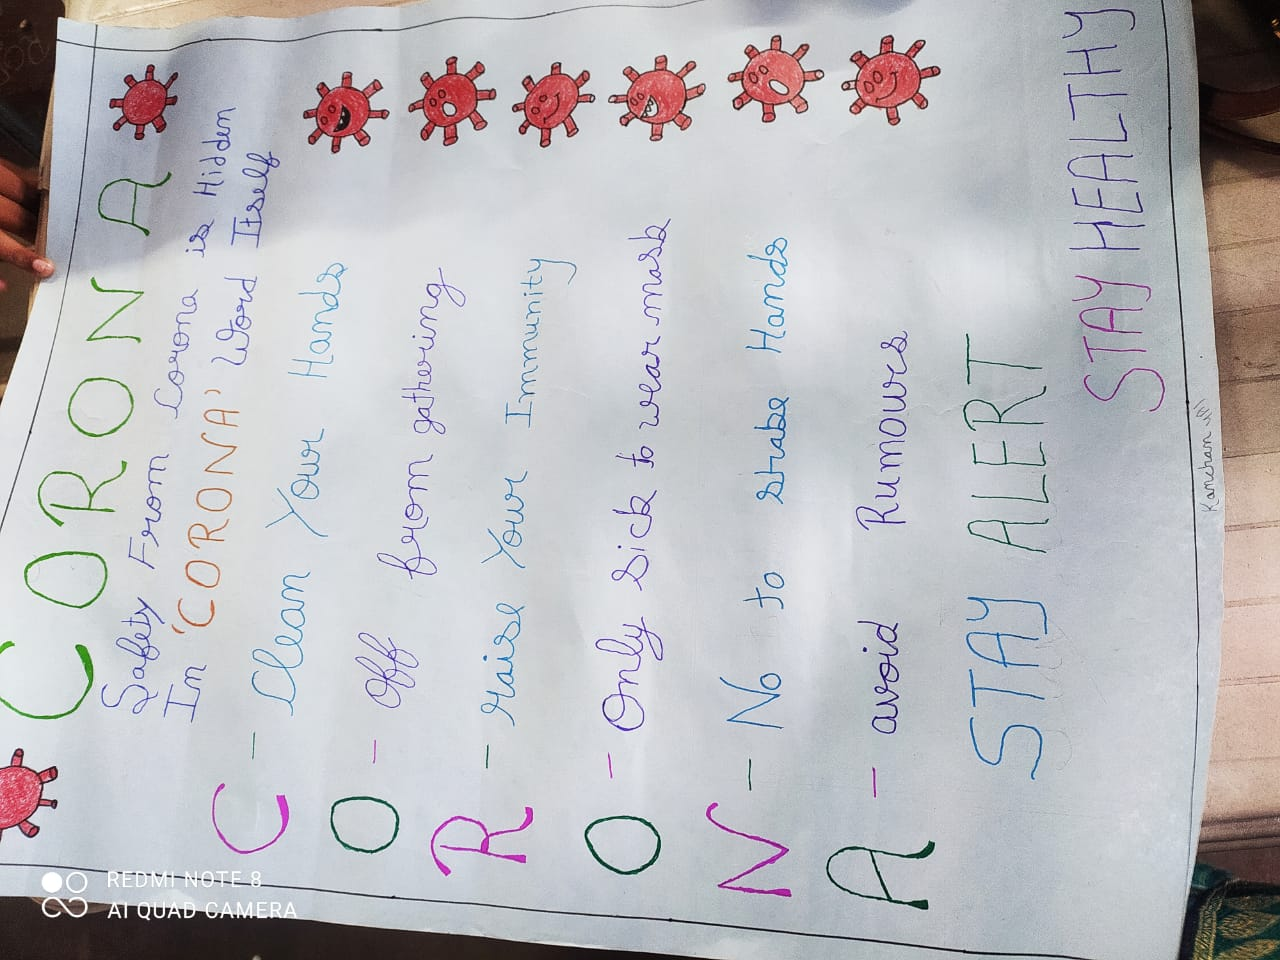 CORONA
Safety From Corona is Hidden
In 'CORONA' Word Itself
C - Clean Your Hands
O - Off from gathering
R - raise Your Immunity
O - Only sick to wear mask
N - No to shake Hands
A - avoid Rumours
STAY ALERT
STAY HEALTHY
REDMI NOTE 8
AI QUAD CAMERA